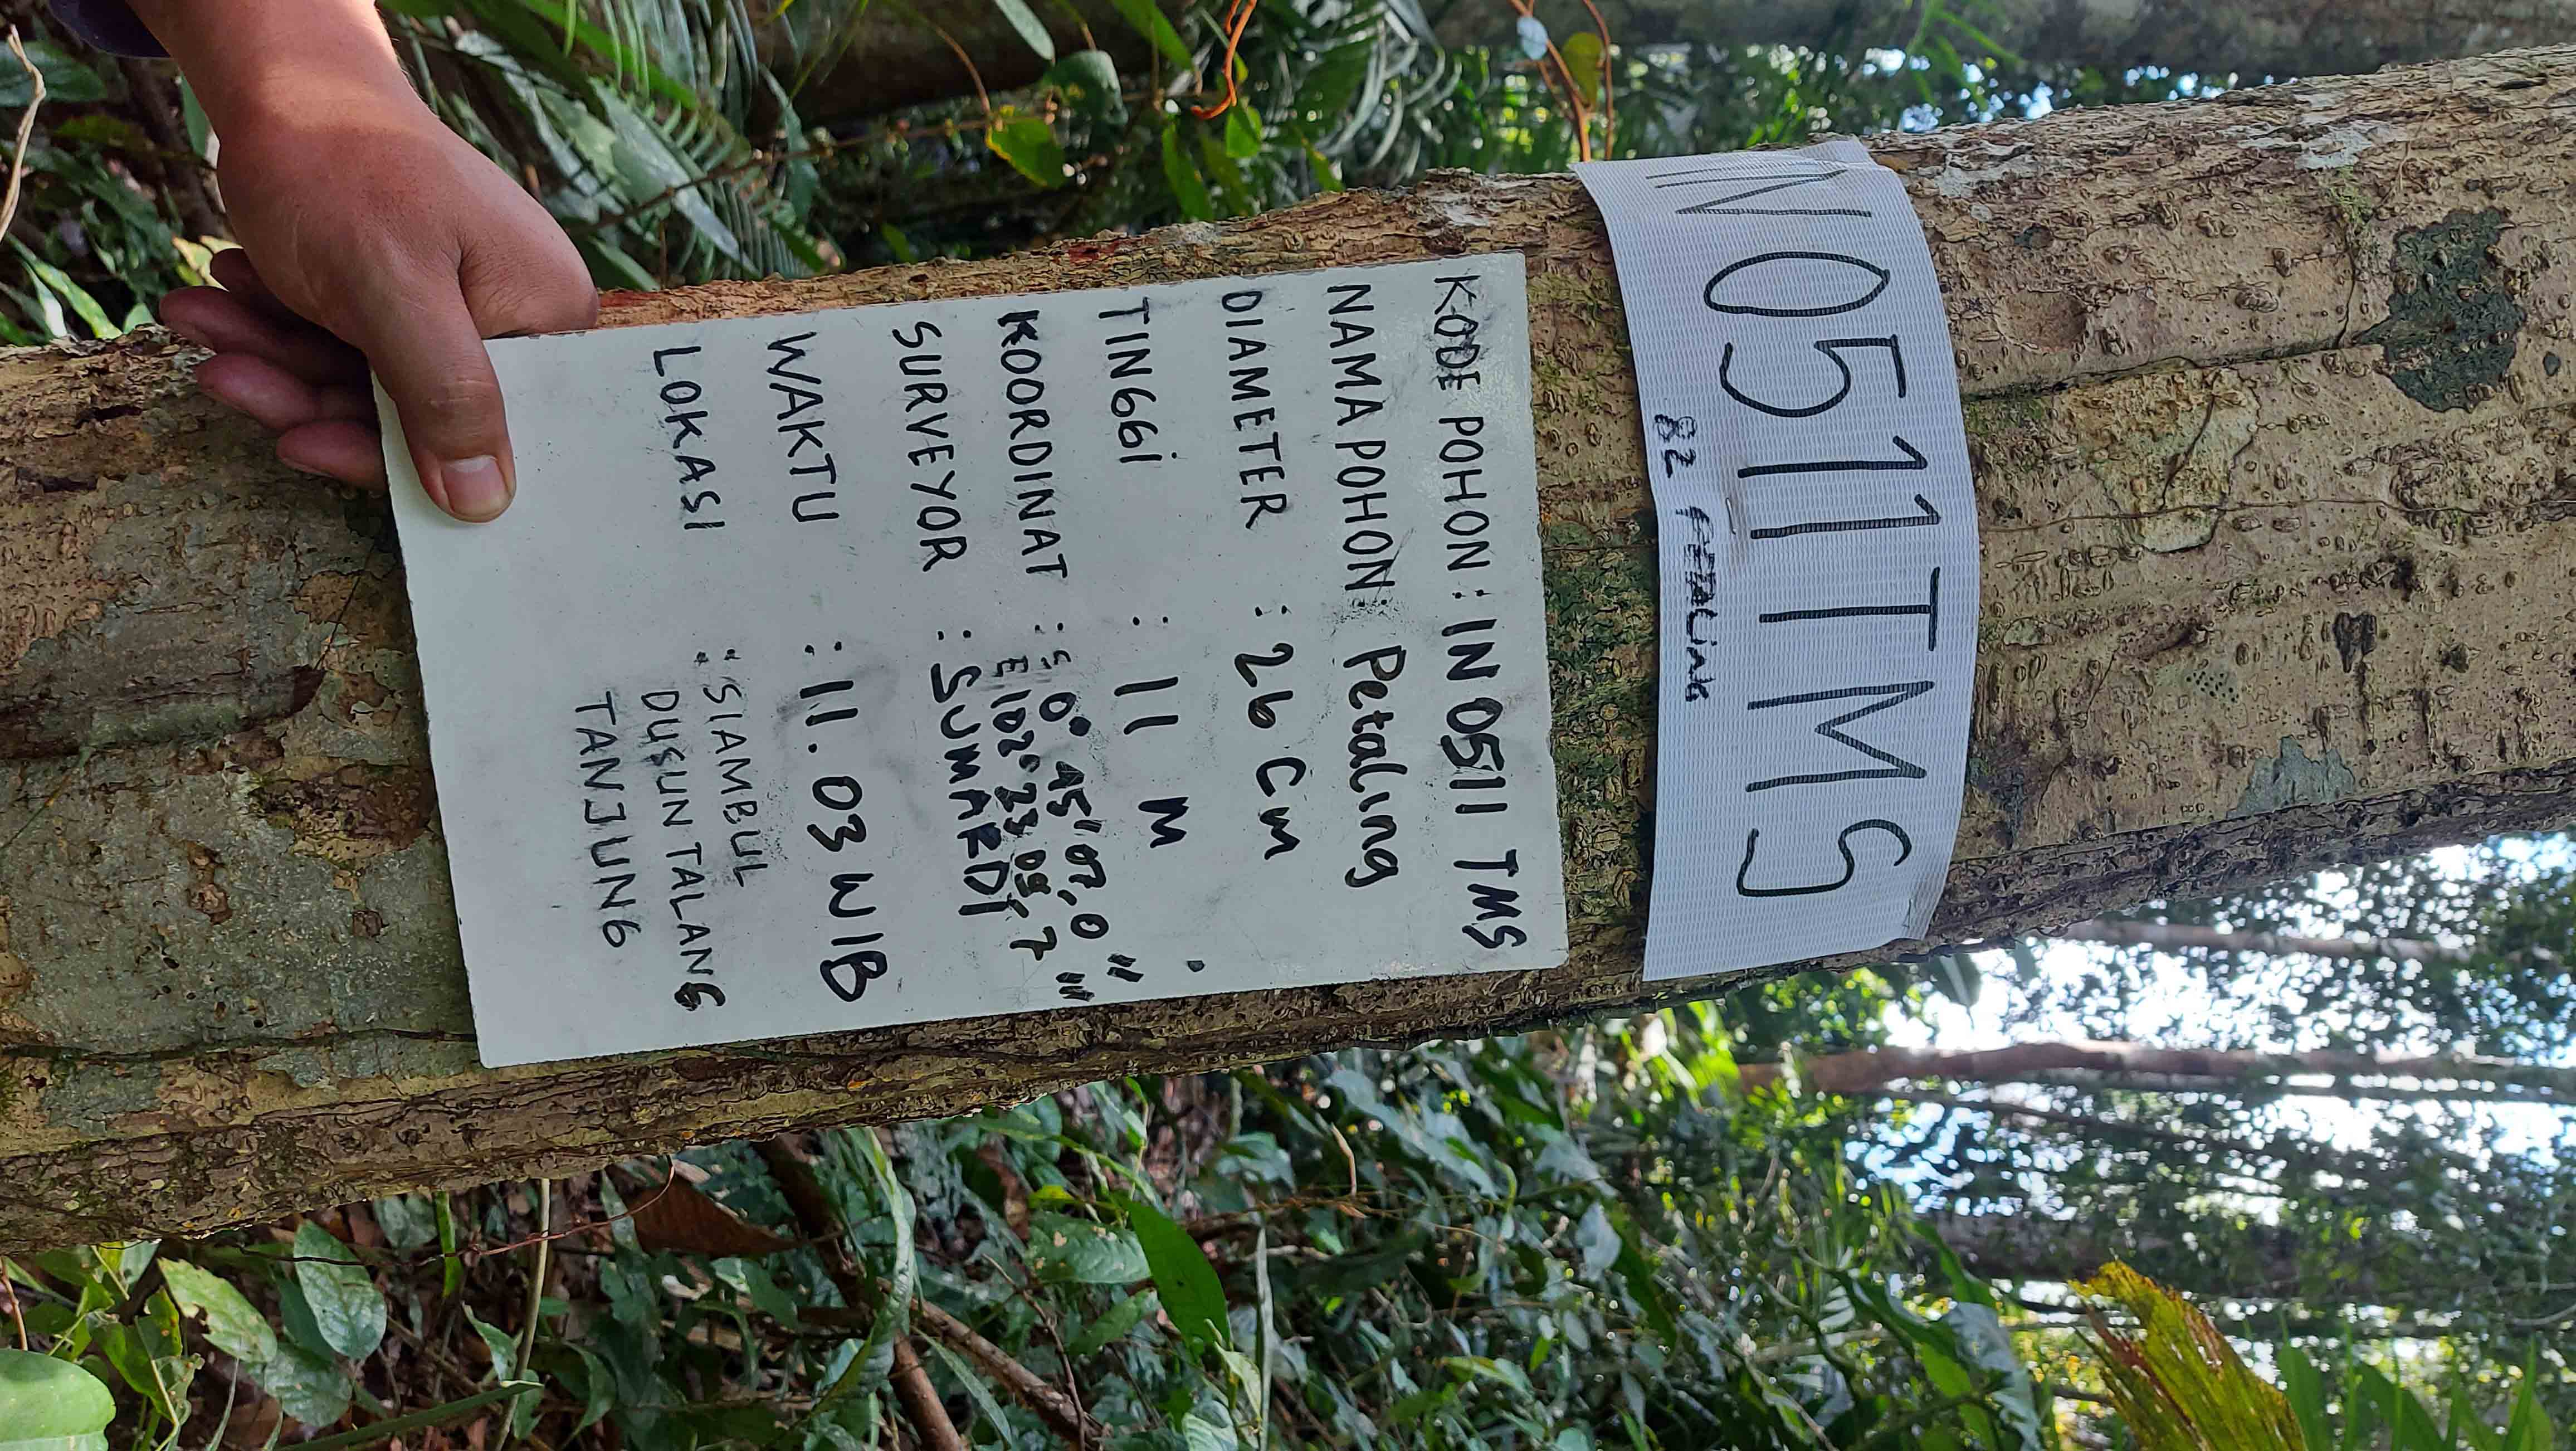 IN0511TMS
82 PETALING
KODE POHON : IN 0511 TMS
NAMA POHON : Petaling
DIAMETER : 26 Cm
TINGGi : 11 M
KOORDINAT : S 0° 45' 07,0"
E 102° 23 09,7"
SURVEYOR : SUMARDI
WAKTU : 11.03 WIB
LOKASI : SIAMBUL
DUSUN TALANG
TANJUNG